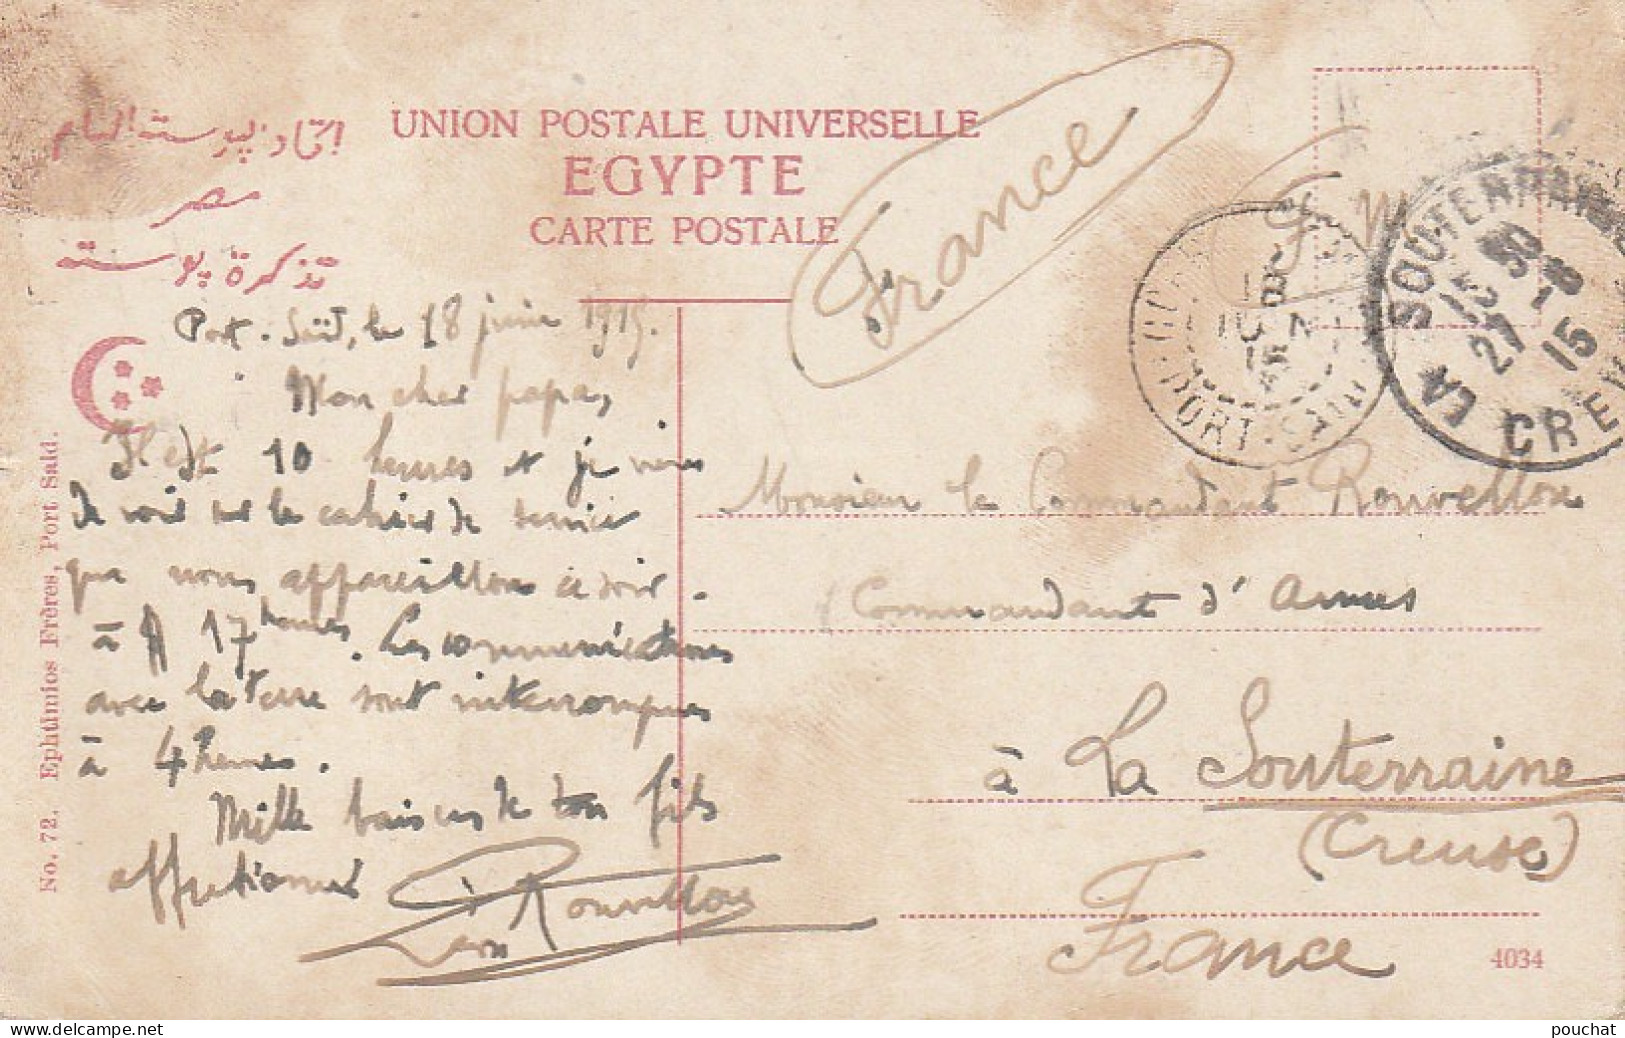 اتحاد پوستة العام
مصر
تذكرة پوستة
UNION POSTALE UNIVERSELLE
EGYPTE
CARTE POSTALE
France
F. M
PORT-SAID
LA SOUTERRAINE
15 30
27 -6
15
CREU
Port-Saïd, le 18 juin 1915.
Mon cher papa,
Il est 10 heures et je viens
de voir sur le cahier de service
que nous appareillons ce soir.
à 17 heures. Les communications
avec la terre sont interrompues
à 4 heures.
Mille baisers de ton fils
affectionné
Léon Rouvellou
Monsieur le Commandant Rouvellou
Commandant d'Armes
à La Souterraine
(Creuse)
France
No. 72. Ephtimios Frères, Port Said.
4034
pouchat